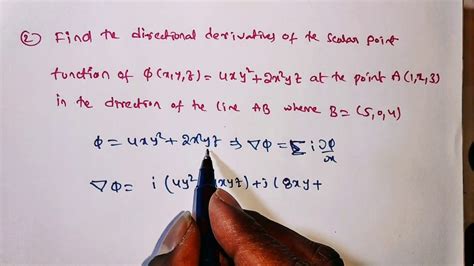 ② Find the directional derivatives of the scalar point
function of φ(x,y,z) = 4xy²+2x²yz at the point A(1,2,3)
in the direction of the line AB where B = (5,0,4)
φ = 4xy² + 2x²yz ⇒ ∇φ = Σ i ∂φ/∂x
∇φ = i (4y² xyz) + j (8xy +